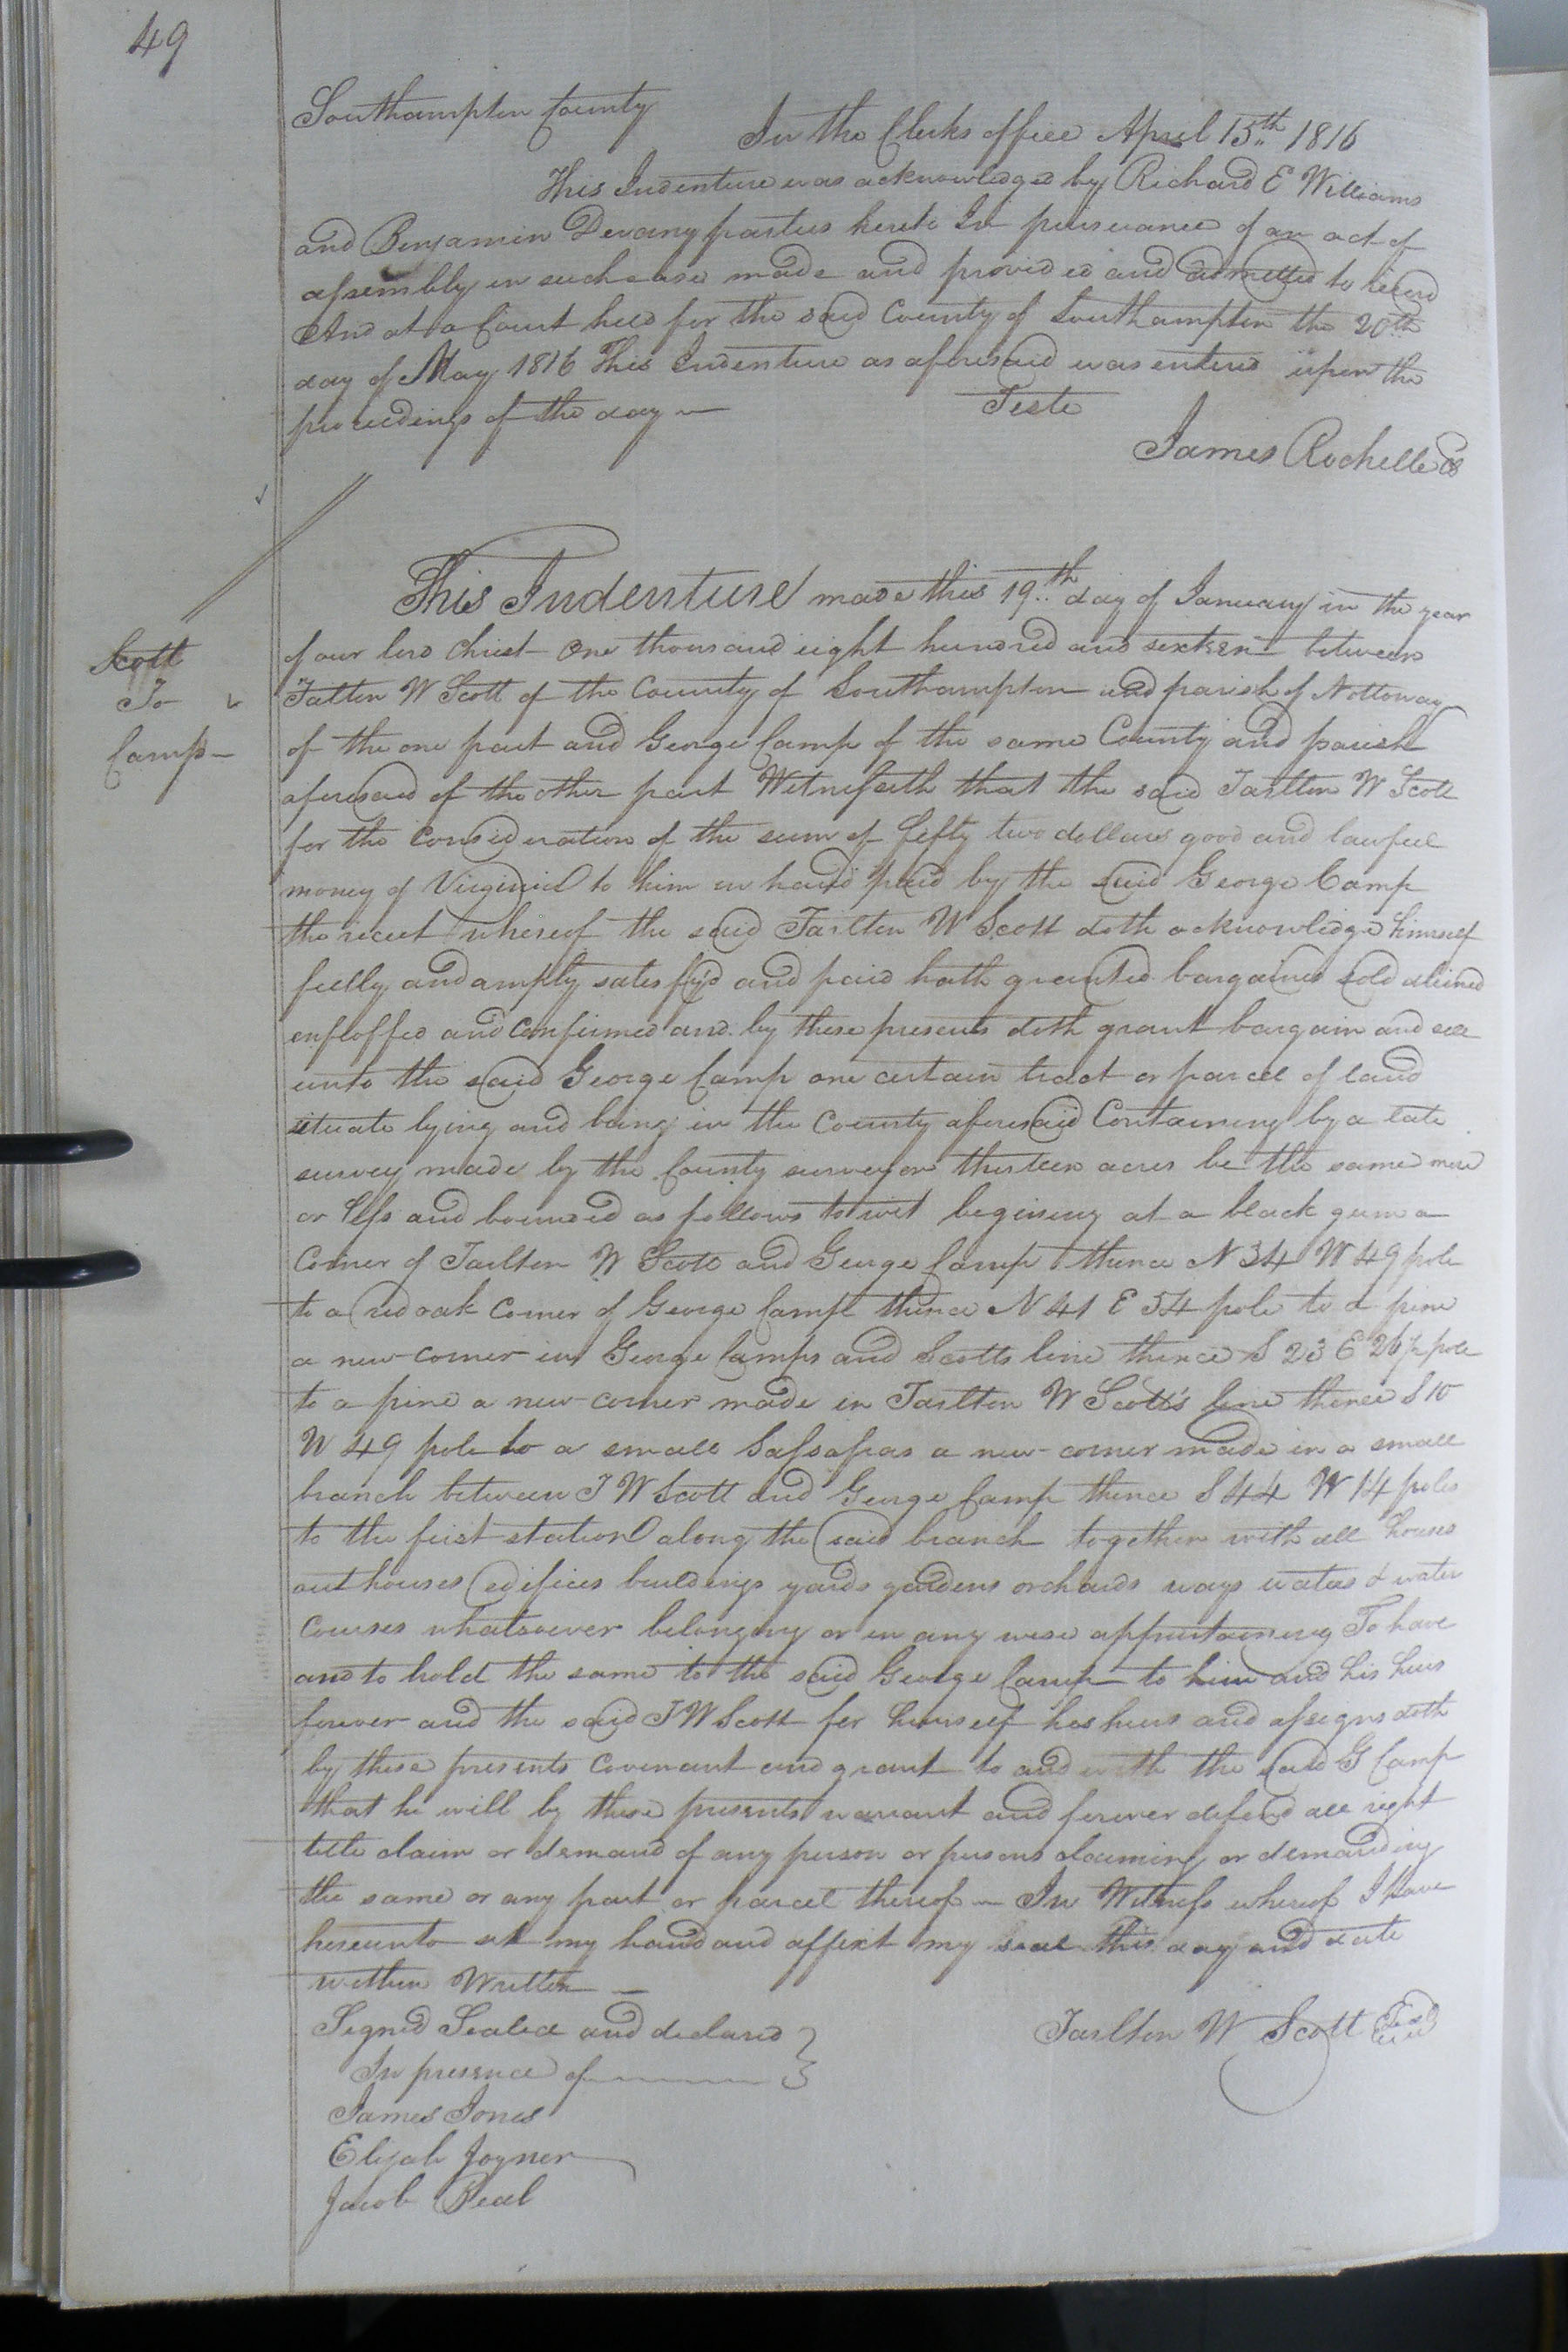 49
Southampton County
In the Clerks office April 15th 1816
This Indenture was acknowledged by Richard E Williams
and Benjamin Devany parties hereto In pursuance of an act of
assembly in such case made and provided and admitted to record
And at a Court held for the said County of Southampton the 20th
day of May 1816 This Indenture as aforesaid was entered upon the
proceedings of the day
Teste
James Rochelle
This Indenture made this 19th day of January in the year
of our lord Christ One thousand eight hundred and sixteen between
Scott
To
Camp
Talten W Scott of the County of Southampton and parish of Nottoway
of the one part and George Camp of the same County and parish
aforesaid of the other part Witnesseth that the said Tarlton W Scott
for the Consideration of the sum of fifty two dollars good and lawfull
money of Virginia to him in hand paid by the said George Camp
the receet whereof the said Tarlton W Scott doth acknowledge himself
fully and amply satesfy'd and paid hath granted bargained sold aliened
enfloffed and Confirmed and by these presents doth grant bargain and sell
unto the said George Camp one certain tract or parcel of land
situate lying and being in the County aforesaid Containing by a late
survey made by the County surveyor thirteen acres be the same more
or less and bounded as follows to wit begining at a black gum a
Corner of Tarlton W Scott and George Camp thence N 34 W 49 pole
to a red oak Corner of George Camp thence N 41 E 54 pole to a pine
a new corner in George Camps and Scotts line thence S 23 E 26½ pole
to a pine a new corner made in Tarlton W Scott's line thence S 10
W 49 pole to a small Sassafras a new corner made in a small
branch between T W Scott and George Camp thence S 44 W 14 poles
to the first station along the said branch together with all houses
out houses edifices buildings yards gardens orchards ways waters & water
Courses whatsoever belonging or in any wise appurtaining To have
and to hold the same to the said George Camp to him and his heirs
forever and the said T W Scott for himself his heirs and assigns doth
by these presents Covenant and grant to and with the said G Camp
that he will by these presents warrant and forever defend all right
title claim or demand of any person or persons claiming or demanding
the same or any part or parcel thereof In Witness whereof I have
hereunto set my hand and affixt my seal this day and date
within Written
Signed Sealed and declared
In presence of
Tarlton W Scott Seal
James Jones
Elijah Joyner
Jacob Beal